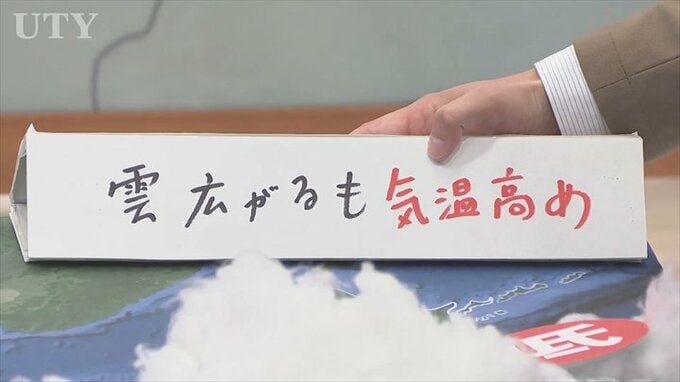 UTY
雲広がるも気温高め